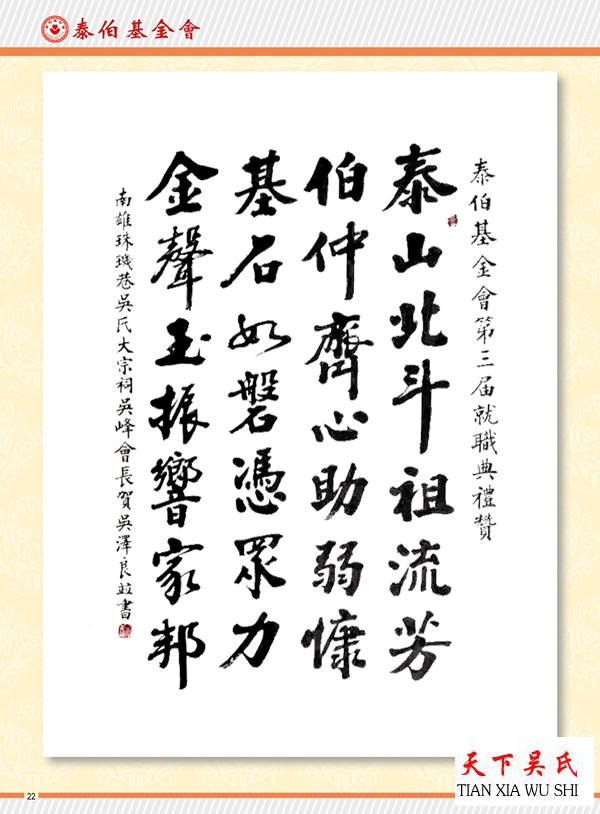 泰伯基金會
泰伯基金會第三届就職典禮贊
泰山北斗祖流芳
伯仲齊心助弱慷
基石如磐憑眾力
金聲玉振響家邦
南雄珠璣巷吳氏大宗祠吳峰會長賀吳澤良並書
22
天下吴氏
TIAN XIA WU SHI